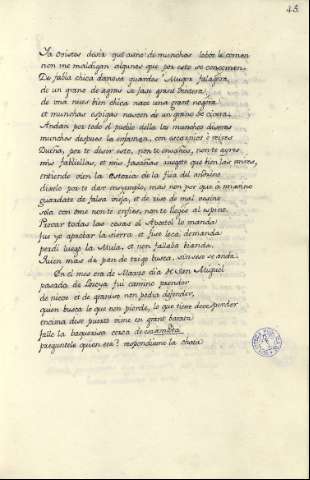 48.
Ya oistes desir que asno de munchos lobos le comen
non me maldigan algunas que por esto se concomen.
De fabla chica dañosa guardes Muger falagera,
de un grano de agras se fase grant dentera,
de una nues bien chica nace una grant noguera
et munchas espigas nascen de un grano de civera.
Andan por todo el pueblo della los munchos disires
munchos despues la enfaman, con escarnios é reires
Dueña, por te desir esto, non te enseñes, non te ayres
mis fabliellas, et mis fasañas ruegote que bien las mires,
entiende bien la estoria de la fija del endrino
dixelo por te dar ensiemplo, mas non por que á mi avino
guardate de falsa vieja, et de riso de mal vesino
sola con ome non te enfies, non te llegues al espino.
Provar todas las cosas el Apostol lo manda
fui yo aprobar la sierra et fise loca demanda
perdi luego la Mula, et non fallaba bianda
Quien mas de pan de trigo busca, sin seso se anda.
En el mes era de Marzo dia de San Miguel
pasada de Losoya fui camino prender
de nieve et de granizo non podia defender,
quien busca lo que non pierde, lo que tiene debe perder
encima dese puerto vime en grant barata
fallé la baqueriza cerca de esa mata
preguntele quien era? respondiome la Chata